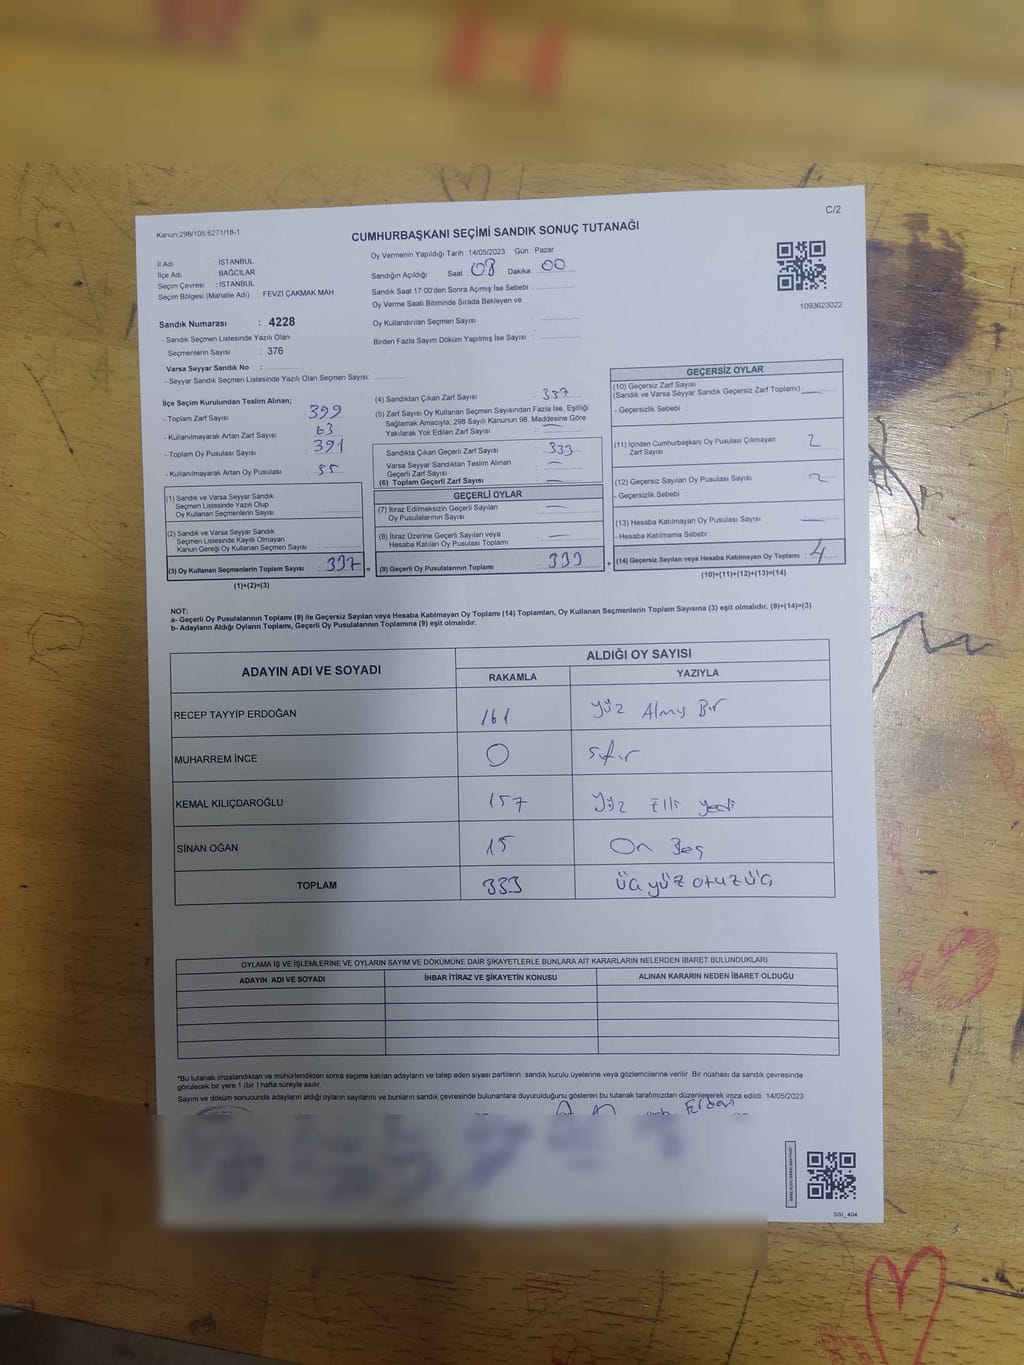 C/2
Kanun:298/105,6271/18-1
CUMHURBAŞKANI SEÇİMİ SANDIK SONUÇ TUTANAĞI
İl Adı : İSTANBUL
İlçe Adı : BAĞCILAR
Seçim Çevresi : İSTANBUL
Seçim Bölgesi (Mahalle Adı) : FEVZİ ÇAKMAK MAH.
Oy Vermenin Yapıldığı Tarih : 14/05/2023 Gün : Pazar
Sandığın Açıldığı Saat : 08 Dakika : 00
Sandık Saat 17:00'den Sonra Açımış İse Sebebi :
Oy Verme Saati Bitiminde Sırada Bekleyen ve
Oy Kullandırılan Seçmen Sayısı :
Birden Fazla Sayım Döküm Yapılmış İse Sayısı :
1093623022
Sandık Numarası : 4228
- Sandık Seçmen Listesinde Yazılı Olan
Seçmenlerin Sayısı : 376
Varsa Seyyar Sandık No :
- Seyyar Sandık Seçmen Listesinde Yazılı Olan Seçmen Sayısı:
İlçe Seçim Kurulundan Teslim Alınan;
- Toplam Zarf Sayısı : 399
- Kullanılmayarak Artan Zarf Sayısı : 63
- Toplam Oy Pusulası Sayısı : 391
- Kullanılmayarak Artan Oy Pusulası : 55
(1) Sandık ve Varsa Seyyar Sandık
Seçmen Listesinde Yazılı Olup
Oy Kullanan Seçmenlerin Sayısı :
(2) Sandık ve Varsa Seyyar Sandık
Seçmen Listesinde Kayıtlı Olmayan
Kanun Gereği Oy Kullanan Seçmen Sayısı :
(3) Oy Kullanan Seçmenlerin Toplam Sayısı : 337 =
(1)+(2)=(3)
(4) Sandıktan Çıkan Zarf Sayısı : 337
(5) Zarf Sayısı Oy Kullanan Seçmen Sayısından Fazla İse, Eşitliği
Sağlamak Amacıyla; 298 Sayılı Kanunun 98. Maddesine Göre
Yakılarak Yok Edilen Zarf Sayısı : —
Sandıkta Çıkan Geçerli Zarf Sayısı : 333
Varsa Seyyar Sandıktan Teslim Alınan
Geçerli Zarf Sayısı : —
(6) Toplam Geçerli Zarf Sayısı : —
GEÇERLİ OYLAR
(7) İtiraz Edilmeksizin Geçerli Sayılan
Oy Pusulalarının Sayısı : —
(8) İtiraz Üzerine Geçerli Sayılan veya
Hesaba Katılan Oy Pusulası Toplamı : —
(9) Geçerli Oy Pusulalarının Toplamı : 333 +
GEÇERSİZ OYLAR
(10) Geçersiz Zarf Sayısı
(Sandık ve Varsa Seyyar Sandık Geçersiz Zarf Toplamı) : —
- Geçersizlik Sebebi :
(11) İçinden Cumhurbaşkanı Oy Pusulası Çıkmayan
Zarf Sayısı : 2
(12) Geçersiz Sayılan Oy Pusulası Sayısı : 2
- Geçersizlik Sebebi :
(13) Hesaba Katılmayan Oy Pusulası Sayısı : —
- Hesaba Katılmama Sebebi :
(14) Geçersiz Sayılan veya Hesaba Katılmayan Oy Toplamı : 4
(10)+(11)+(12)+(13)=(14)
NOT:
a- Geçerli Oy Pusulalarının Toplamı (9) ile Geçersiz Sayılan veya Hesaba Katılmayan Oy Toplamı (14) Toplamları, Oy Kullanan Seçmenlerin Toplam Sayısına (3) eşit olmalıdır. (9)+(14)=(3)
b- Adayların Aldığı Oyların Toplamı, Geçerli Oy Pusulalarının Toplamına (9) eşit olmalıdır.
ADAYIN ADI VE SOYADI ALDIĞI OY SAYISI
RAKAMLA YAZIYLA
RECEP TAYYİP ERDOĞAN 161 Yüz Almış Bir
MUHARREM İNCE 0 sıfır
KEMAL KILIÇDAROĞLU 157 Yüz Elli yedi
SİNAN OĞAN 15 On Beş
TOPLAM 333 üç yüz otuz üç
OYLAMA İŞ VE İŞLEMLERİNE VE OYLARIN SAYIM VE DÖKÜMÜNE DAİR ŞİKAYETLERLE BUNLARA AİT KARARLARIN NELERDEN İBARET BULUNDUKLARI
ADAYIN ADI VE SOYADI İHBAR İTİRAZ VE ŞİKAYETİN KONUSU ALINAN KARARIN NEDEN İBARET OLDUĞU
*Bu tutanak imzalandıktan ve mühürlendikten sonra seçime katılan adayların ve talep eden siyasi partilerin sandık kurulu üyelerine veya gözlemcilerine verilir. Bir nüshası da sandık çevresinde
görülecek bir yere 1 (bir ) hafta süreyle asılır.
Sayım ve döküm sonucunda adayların aldığı oyların sayılarını ve bunların sandık çevresinde bulunanlara duyurulduğunu gösteren bu tutanak tarafımızdan düzenlenerek imza edildi. 14/05/2023
SSI_404